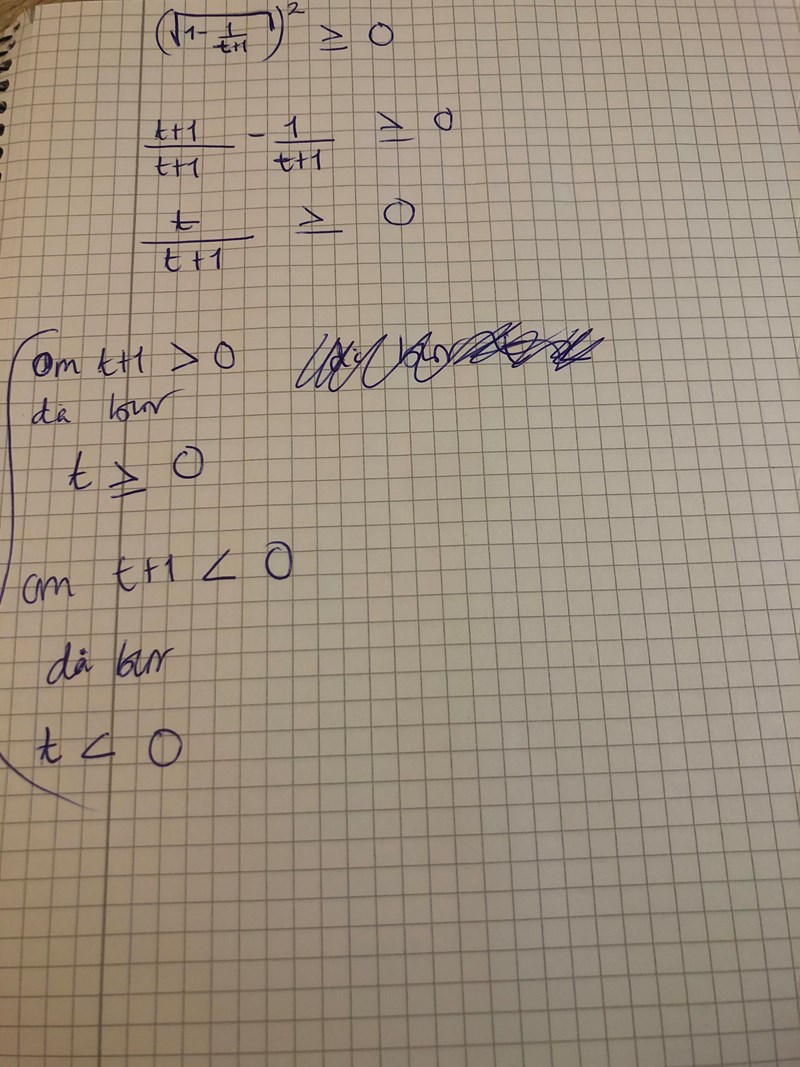 (√1 - 1/t+1)² ≥ 0
t+1/t+1 - 1/t+1 ≥ 0
t/t+1 ≥ 0
om t+1 > 0
då
t ≥ 0
om t+1 < 0
då
t < 0